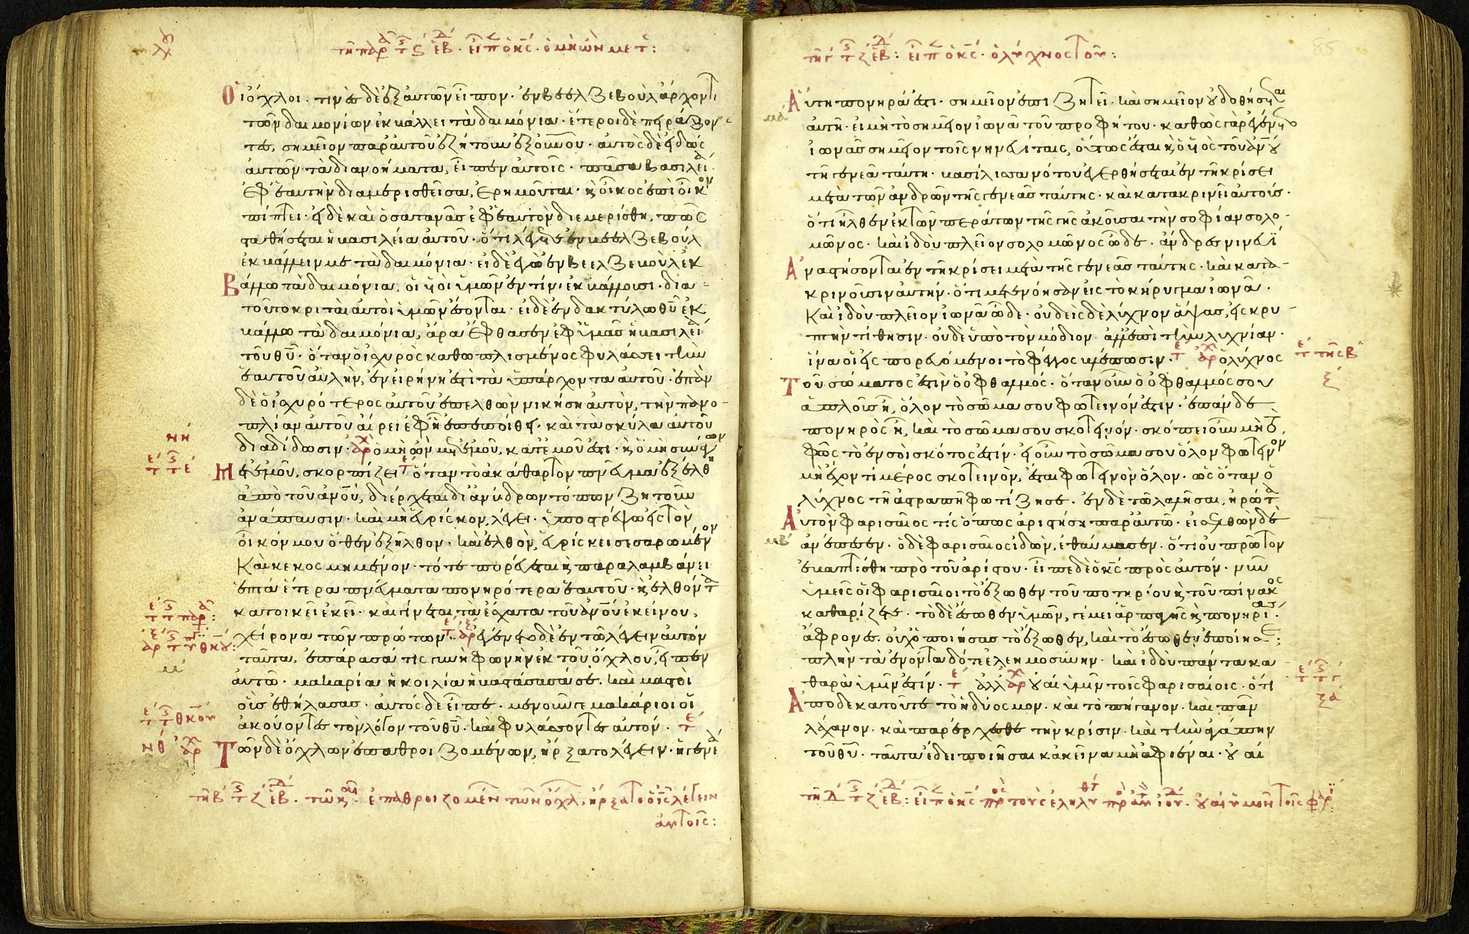 τῆ παρ τ ϛ ἑβ· εἶπ ὁ κς· ὁ μὴ ὢν μετ:
Οἱ ὄχλοι· τινὲς δὲ ἐξ αὐτῶν εἶπον· ἐν βεελζεβοὺλ ἄρχοντι
τῶν δαιμονίων ἐκβάλλει τὰ δαιμόνια· ἕτεροι δὲ πειράζον
τες, σημεῖον παρ' αὐτοῦ ἐζήτουν ἐξ οὐνου· αὐτὸς δὲ εἰδὼς
αὐτῶν τὰ διανοήματα, εἶπεν αὐτοῖς· πᾶσα βασιλεία
ἐφ' ἑαυτὴν διαμερισθεῖσα, ἐρημοῦται· καὶ οἶκος ἐπὶ οἶκον
πίπτει· εἰ δὲ καὶ ὁ σατανᾶς ἐφ' ἑαυτὸν διεμερίσθη, πῶς
σταθήσεται ἡ βασιλεία αὐτοῦ· ὅτι λέγετε ἐν βεελζεβοὺλ
ἐκβάλλειν με τὰ δαιμόνια· εἰ δὲ ἐγὼ ἐν βεελζεβοὺλ ἐκ
Βάλλω τὰ δαιμόνια, οἱ υἱοὶ ὑμῶν ἐν τίνι ἐκβάλλουσι· δια
τοῦτο κριταὶ αὐτοὶ ὑμῶν ἔσονται· εἰ δὲ ἐν δακτύλω θυ ἐκ
βάλλω τὰ δαιμόνια, ἄρα ἔφθασεν ἐφ' ὑμᾶς ἡ βασιλεία
τοῦ θυ· ὅταν ὁ ἰσχυρὸς καθωπλισμένος φυλάσσει τὴν
ἑαυτοῦ αὐλὴν, ἐν εἰρήνη ἐστὶ τὰ ὑπάρχοντα αὐτοῦ· ἐπὰν
δὲ ὁ ἰσχυρότερος αὐτοῦ ἐπελθὼν νικήση αὐτὸν, τὴν πανο
πλίαν αὐτοῦ αἴρει ἐφ' ἧ ἐπεποίθει· καὶ τὰ σκῦλα αὐτοῦ
διαδίδωσιν· ἀρχ ὁ μὴ ὢν μετ' ἐμοῦ, κατ' ἐμοῦ ἐστι· καὶ ὁ μὴ συνάγων
Μετ' ἐμοῦ, σκορπίζει· ὅταν τὸ ἀκάθαρτον πνεῦμα ἐξέλθη
ἀπὸ τοῦ ἀνου, διέρχεται δι' ἀνύδρων τόπων ζητοῦν
ἀνάπαυσιν· καὶ μὴ εὑρίσκον, λέγει· ὑποστρέψω εἰς τὸν
οἶκόν μου ὅθεν ἐξῆλθον· καὶ ἐλθὸν, εὑρίσκει σεσαρωμένον
Καὶ κεκοσμημένον· τότε πορεύεται καὶ παραλαμβάνει
ἑπτὰ ἕτερα πνεύματα πονηρότερα ἑαυτοῦ· καὶ ἐλθόντα
κατοικεῖ ἐκεῖ· καὶ γίνεται τὰ ἔσχατα τοῦ ἀνου ἐκείνου,
χείρονα τῶν πρώτων· ἐγένετο δὲ ἐν τῶ λέγειν αὐτὸν
ταῦτα, ἐπάρασά τις γυνὴ φωνὴν ἐκ τοῦ ὄχλου, εἶπεν
αὐτῶ· μακαρία ἡ κοιλία ἡ βαστάσασά σε· καὶ μαστοὶ
οὓς ἐθήλασας· αὐτὸς δὲ εἶπε· μενοῦνγε μακάριοι οἱ
ἀκούοντες τὸν λόγον τοῦ θυ· καὶ φυλάσσοντες αὐτόν·
νθ ἀρχ Τῶν δὲ ὄχλων ἐπαθροιζομένων, ἤρξατο λέγειν· ἡ γενεὰ
τῆ β τ ζ ἑβ· τῶ κ· ἐπαθροιζομέν τῶν ὄχλ, ἤρξατο ὁ ις λέγειν
αὐτοῖς:
τῆ γ τ ζ ἑβ: εἶπ ὁ κς· ὁ λύχνος τοῦ:
Αὕτη πονηρά ἐστι· σημεῖον ἐπιζητεῖ· καὶ σημεῖον οὐ δοθήσεται
αὐτῆ· εἰ μὴ τὸ σημεῖον ἰωνᾶ τοῦ προφήτου· καθὼς γὰρ ἐγένετο
ἰωνᾶς σημεῖον τοῖς νινευίταις, οὕτως ἔσται καὶ ὁ υἱος τοῦ ἀνου
τῆ γενεᾶ ταύτη· βασίλισσα νότου ἐγερθήσεται ἐν τῆ κρίσει
μετὰ τῶν ἀνδρῶν τῆς γενεᾶς ταύτης· καὶ κατακρινεῖ αὐτούς·
ὅτι ἦλθεν ἐκ τῶν περάτων τῆς γῆς ἀκοῦσαι τὴν σοφίαν σολο
μῶνος· καὶ ἰδοὺ πλεῖον σολομῶνος ὧδε· ἄνδρες νινευῒ
Ἀναστήσονται ἐν τῆ κρίσει μετὰ τῆς γενεᾶς ταύτης· καὶ κατα
κρινοῦσιν αὐτήν· ὅτι μετενόησαν εἰς τὸ κήρυγμα ἰωνᾶ·
Καὶ ἰδοὺ πλεῖον ἰωνᾶ ὧδε· οὐδεὶς δὲ λύχνον ἅψας, εἰς κρυ
πτὴν τίθησιν· οὐδὲ ὑπὸ τὸν μόδιον· ἀλλ' ἐπὶ τὴν λυχνίαν·
ἵνα οἱ εἰσπορευόμενοι τὸ φέγγος βλέπωσιν· ἀρχ ὁ λύχνος
Τοῦ σώματός ἐστιν ὁ ὀφθαλμός· ὅταν οὖν ὁ ὀφθαλμός σου
ἁπλοῦς ἦ, ὅλον τὸ σῶμα σου φωτεινόν ἐστιν· ἐπὰν δὲ
πονηρὸς ἦ, καὶ τὸ σῶμα σου σκοτεινόν· σκόπει οὖν μὴ τὸ
φῶς τὸ ἐν σοὶ σκότος ἐστίν· εἰ οὖν τὸ σῶμα σου ὅλον φωτεινὸν
μὴ ἔχον τι μέρος σκοτεινὸν, ἔσται φωτεινὸν ὅλον· ὡς ὅταν ὁ
λύχνος τῆ ἀστραπῆ φωτίζη σε· ἐν δὲ τῶ λαλῆσαι, ἠρώτα
Αὐτὸν φαρισαῖος τίς ὅπως ἀριστήση παρ' αὐτῶ· εἰσελθὼν δὲ
ἀνέπεσεν· ὁ δὲ φαρισαῖος ἰδὼν, ἐθαύμασεν· ὅτι οὐ πρῶτον
ἐβαπτίσθη πρὸ τοῦ ἀρίστου· εἶπε δὲ ὁ κς πρὸς αὐτόν· νῦν
ὑμεῖς οἱ φαρισαῖοι τὸ ἔξωθεν τοῦ ποτηρίου καὶ τοῦ πίνακος
καθαρίζετε· τὸ δὲ ἔσωθεν ὑμῶν, γέμει ἁρπαγῆς καὶ πονηρίας·
ἄφρονες· οὐχ ὁ ποιήσας τὸ ἔξωθεν, καὶ τὸ ἔσωθεν ἐποίησε;
πλὴν τὰ ἐνόντα δότε ἐλεημοσύνην· καὶ ἰδοὺ πάντα κα
θαρὰ ὑμῖν ἐστίν· ἀλλ' ἀρχ οὐαὶ ὑμῖν τοῖς φαρισαίοις· ὅτι
Ἀποδεκατοῦτε τὸ ἡδύοσμον· καὶ τὸ πήγανον· καὶ πᾶν
λάχανον· καὶ παρέρχεσθε τὴν κρίσιν· καὶ τὴν ἀγάπην
τοῦ θυ· ταῦτα ἔδει ποιῆσαι κἀκεῖνα μὴ ἀφιέναι· οὐαὶ
τῆ δ τ ζ ἑβ: εἶπ ὁ κς πρ τοὺς ἐληλυθτ πρ αὐτ ἰουδ· οὐαὶ ὑμῖν τοῖς φαρ: